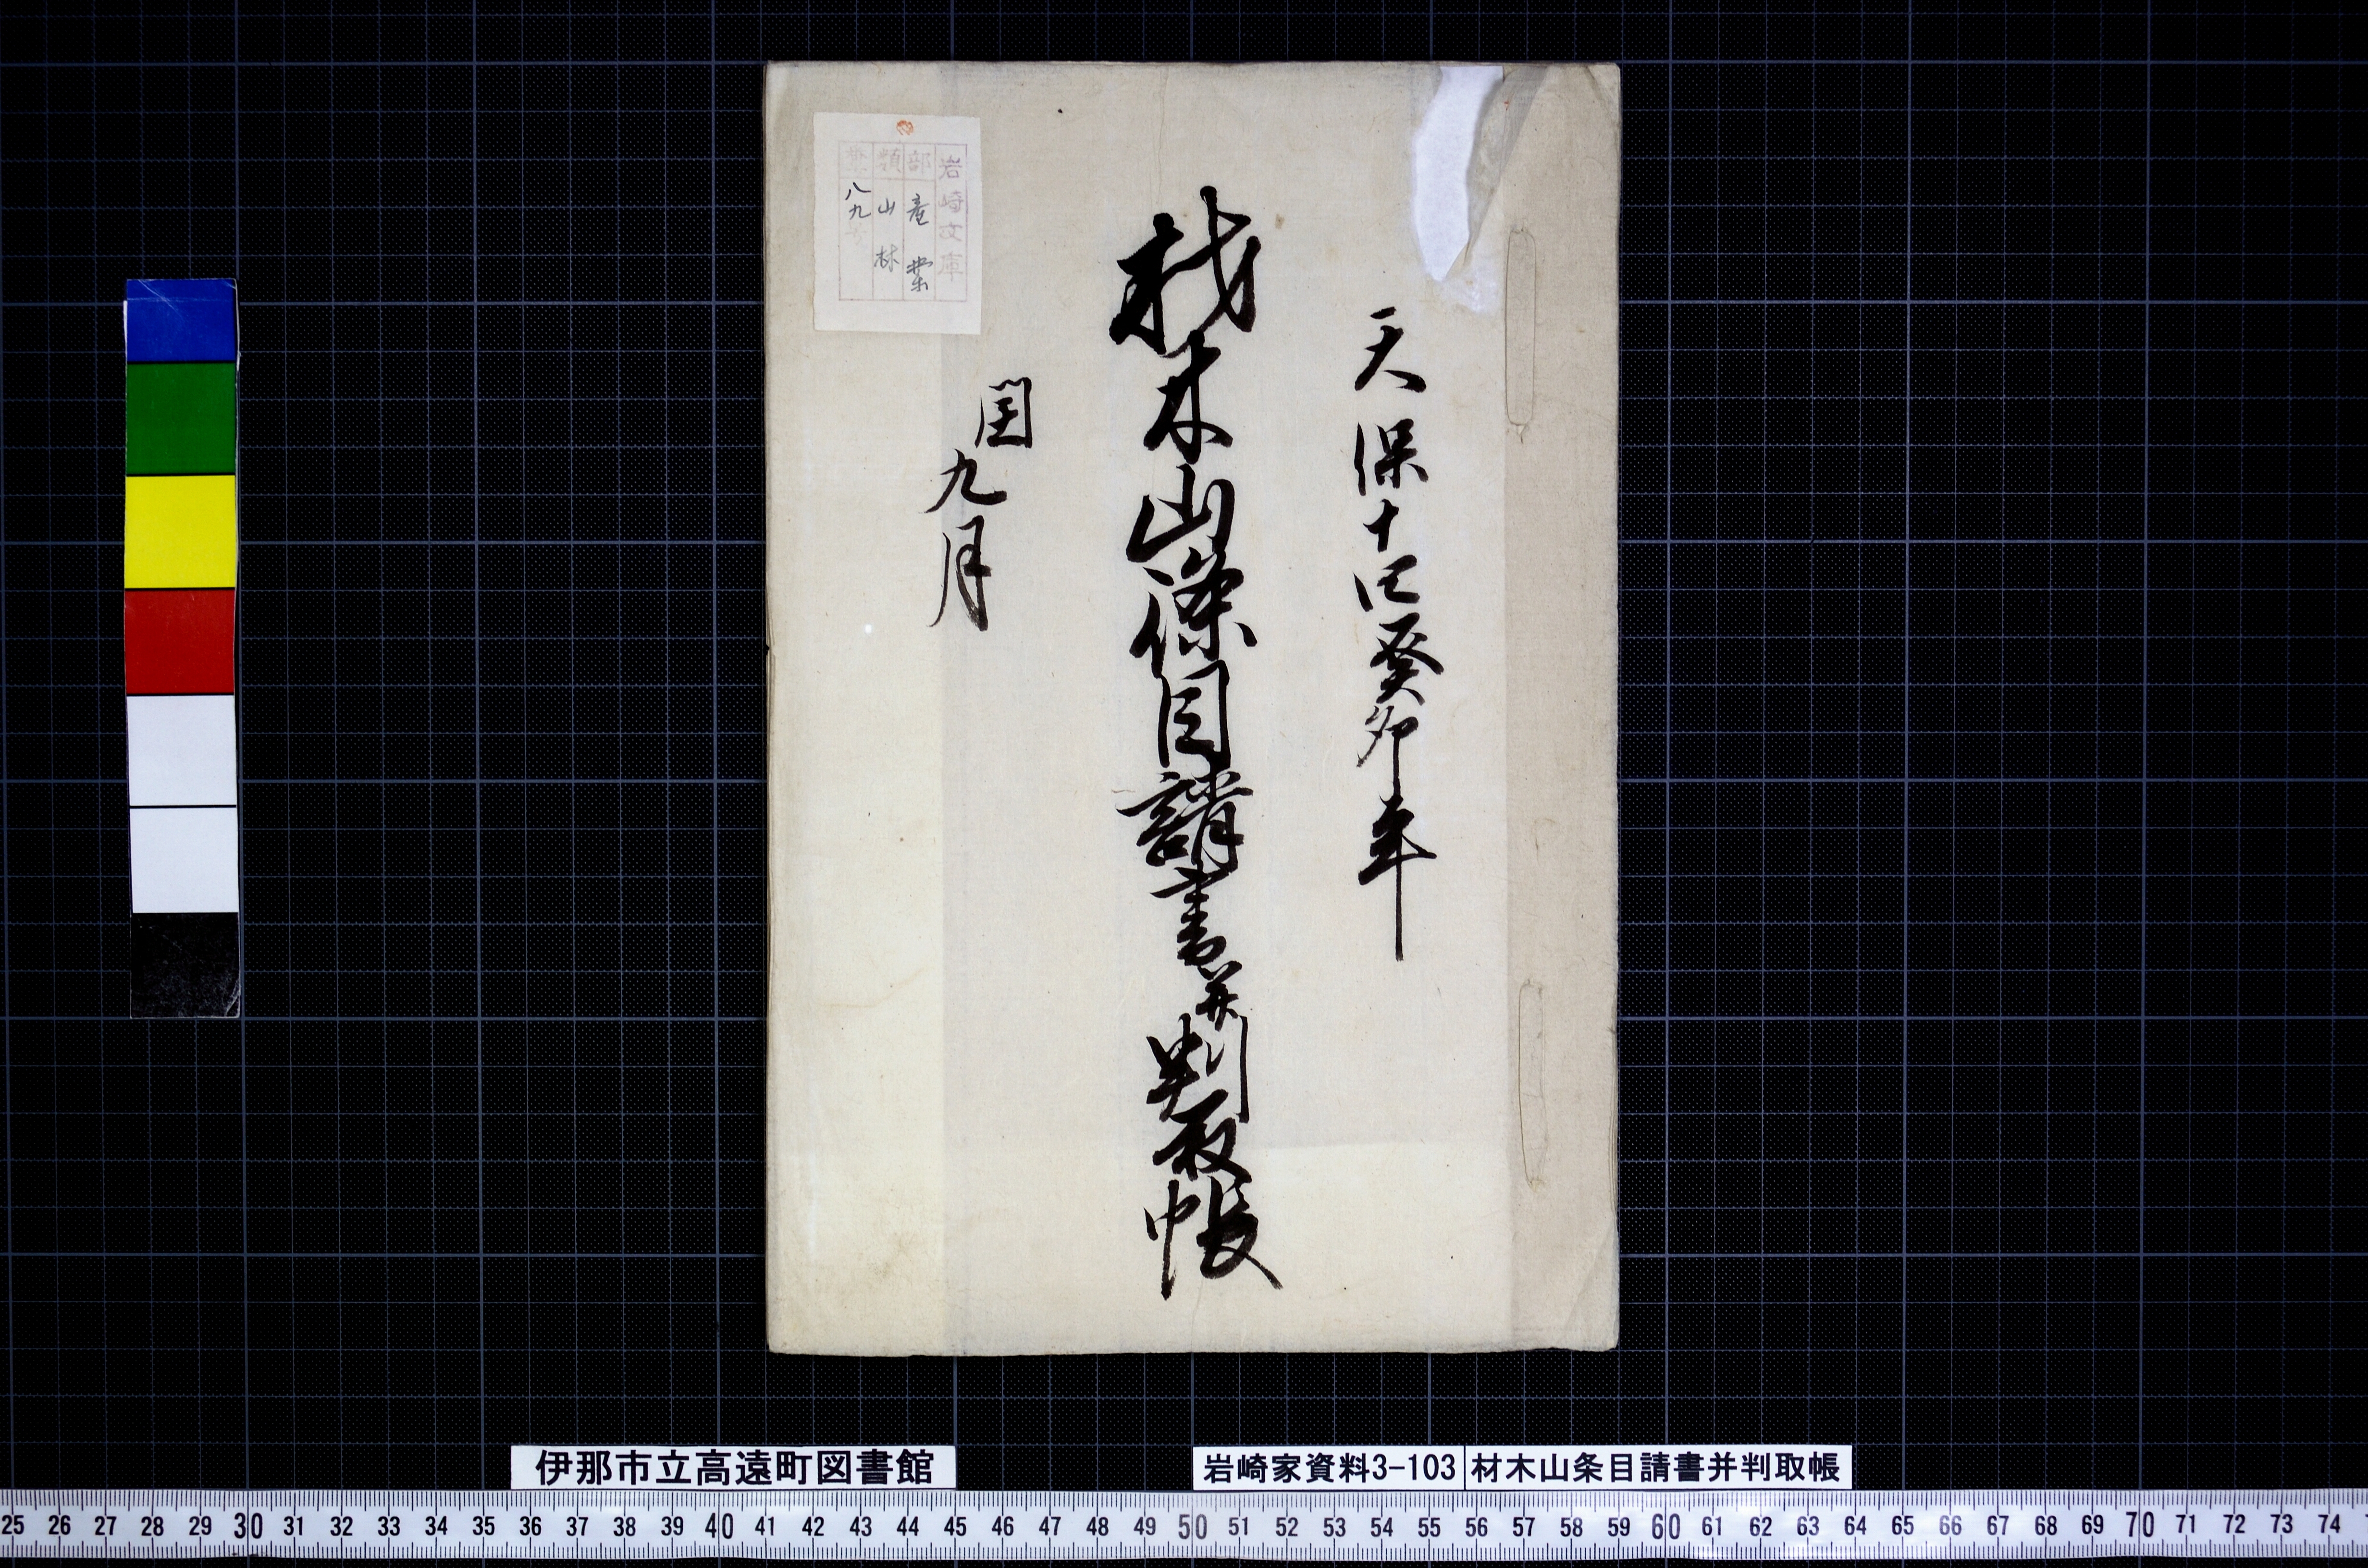 天保十四癸卯年
材木山條目請書并判取帳
閏九月
岩崎文庫
部 産業
類 山林
八九号
伊那市立高遠町図書館
岩崎家資料3-103
材木山条目請書并判取帳
25 26 27 28 29 30 31 32 33 34 35 36 37 38 39 40 41 42 43 44 45 46 47 48 49 50 51 52 53 54 55 56 57 58 59 60 61 62 63 64 65 66 67 68 69 70 71 72 73 74